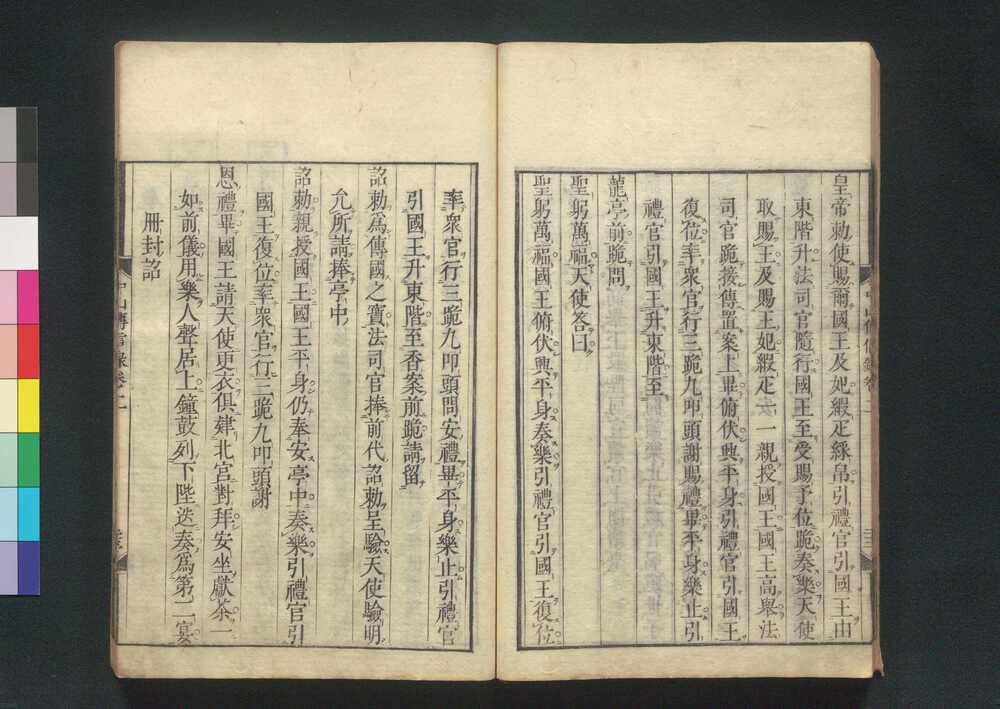 皇帝勅使賜爾國王及妃緞疋綵帛引禮官引國王由
東階升法司官隨行國王至受賜予位跪奏樂天使
取賜王及賜王妃緞疋一一親授國王國王高舉法
司官跪接傳置案上畢俯伏興平身引禮官引國王
復位率衆官行三跪九叩頭謝賜禮畢平身樂止引
禮官引國王升東階至
龍亭前跪問
聖躬萬福天使答曰
聖躬萬福國王俯伏興平身奏樂引禮官引國王復位
率衆官行三跪九叩頭問安禮畢平身樂止引禮官
引國王升東階至香案前跪請留
詔勅爲傳國之寶法司官捧前代詔勅呈驗天使驗明
允所請捧亭中
詔勅親授國王國王平身仍奉安亭中奏樂引禮官引
國王復位率衆官行三跪九叩頭謝
恩禮畢國王請天使更衣俱肂北宮對拜安坐獻茶一
如前儀用樂人聲居上鐘鼓列下陛迭奏爲第二宴
冊封詔
中山傳信録卷二